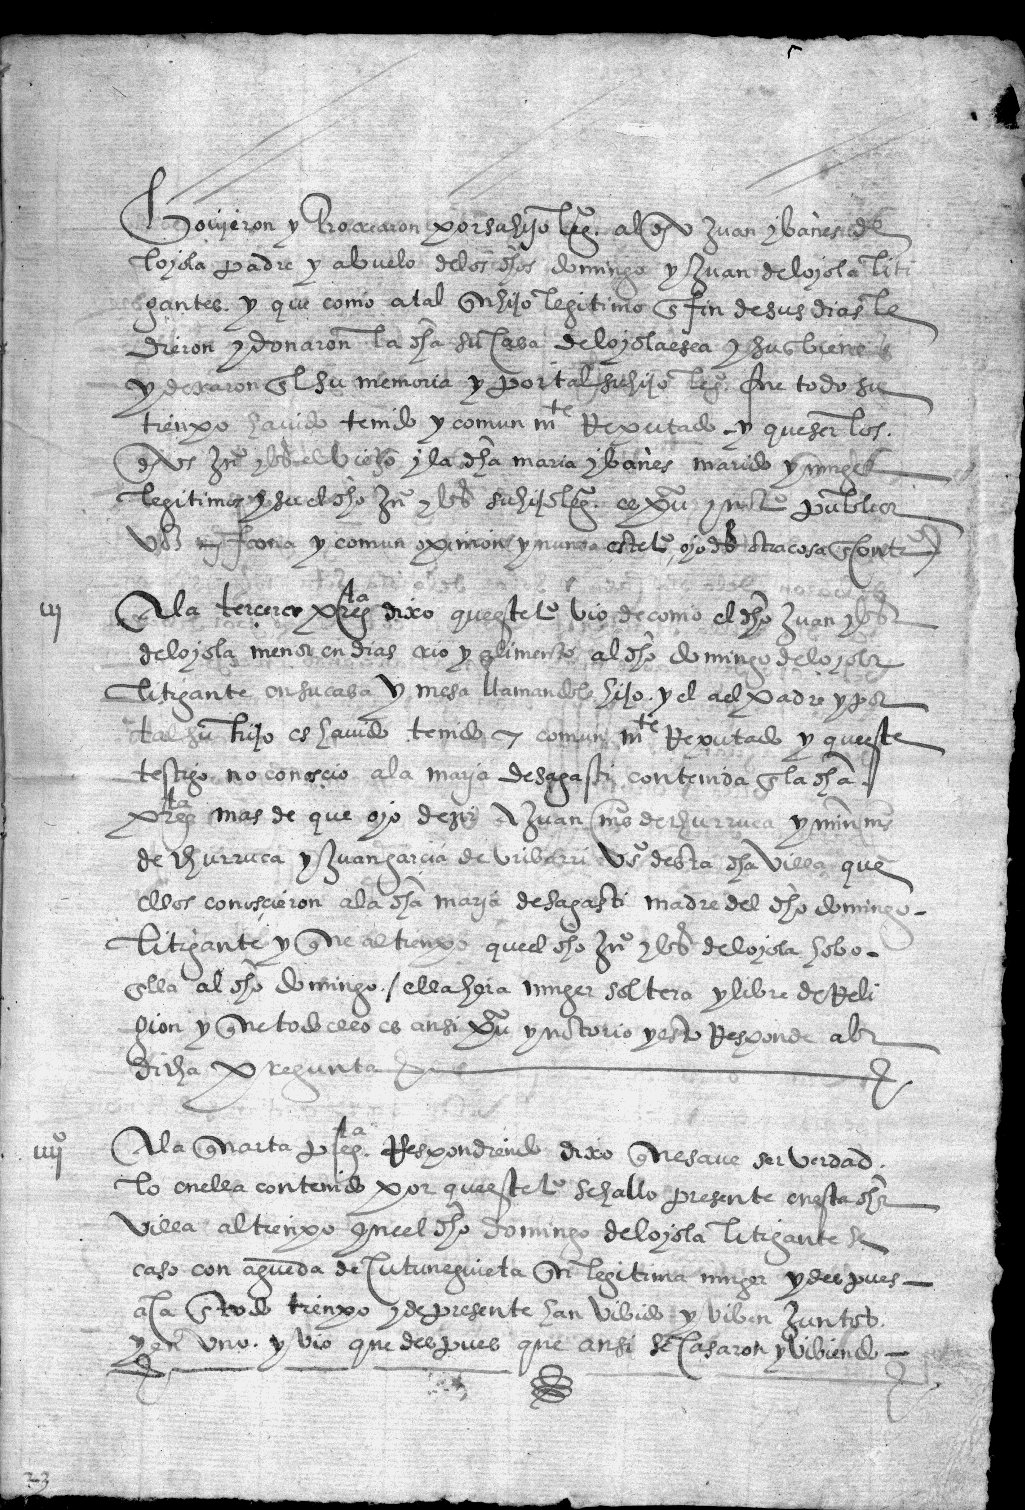 ouieron y procrearon por su hijo leg.mo al dho Juan ybañes de
loyola padre y abuelo de los dhos domingo y Juan de loyola liti
gantes. y que como a tal su hijo legitimo en fin de sus dias le
dieron y donaron la dha su casa de loyolaesea y sus bienes
y dexaron en su memoria y por tal su hijo leg.mo fue todo su
tienpo hauido tenido y comun mte Reputado y que ser los
dhos Jno ybs el viejo y la dha maria ybañes marido y muger
legitimos y su el dho Jno ybs su hijo leg.mo es pu.co y not.o publica
voz fama y comun opinion y nunca este to oyo dezir otra cosa en contro
iij A la tercera preg ta dixo que este to vio de como el dho Juan ybs
de loyola menor en dias crio y alimento al dho domingo de loyola
litigante en su casa y mesa llamandole hijo. y el a el padre y por
tal su hijo es hauido tenido y comun mte Reputado y que este
testigo no conoscio a la maria de sagasti contenida en la dha
preg ta mas de que oyo dezir a Juan mrs de churruca y min mrs
de churruca y Juan garcia de vribarri vos desta dha villa que
ellos conoscieron a la dha maria de sagasti madre del dho domingo
litigante y que al tienpo que el dho Jno ybs de loyola hobo
en ella al dho domingo / ella hera muger soltera y libre de Reli
gion y que todo ello es ansi pu.co y notorio y esto Responde a la
dicha pregunta
iiijo A la quarta preg ta Respondiendo dixo que saue ser verdad
lo en ella contenido por que este to se hallo presente en esta dha
villa al tienpo que el dho domingo de loyola litigante se
caso con agueda de cutuneguieta su legitima muger y despues
aca en todo tienpo y de presente han vibido y viben Juntos
y en vno. y vio que despues que ansi se casaron y vibiendo
23